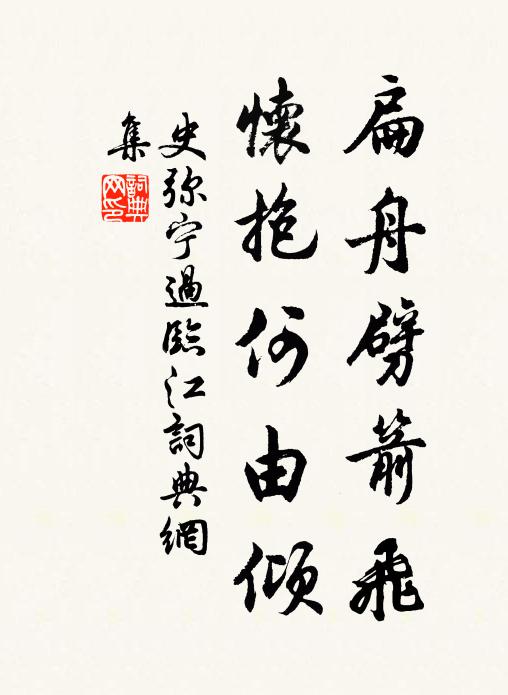 扁舟劈箭飛
懷抱何由傾
史弥宁過臨江詞典網
集
詞典网印